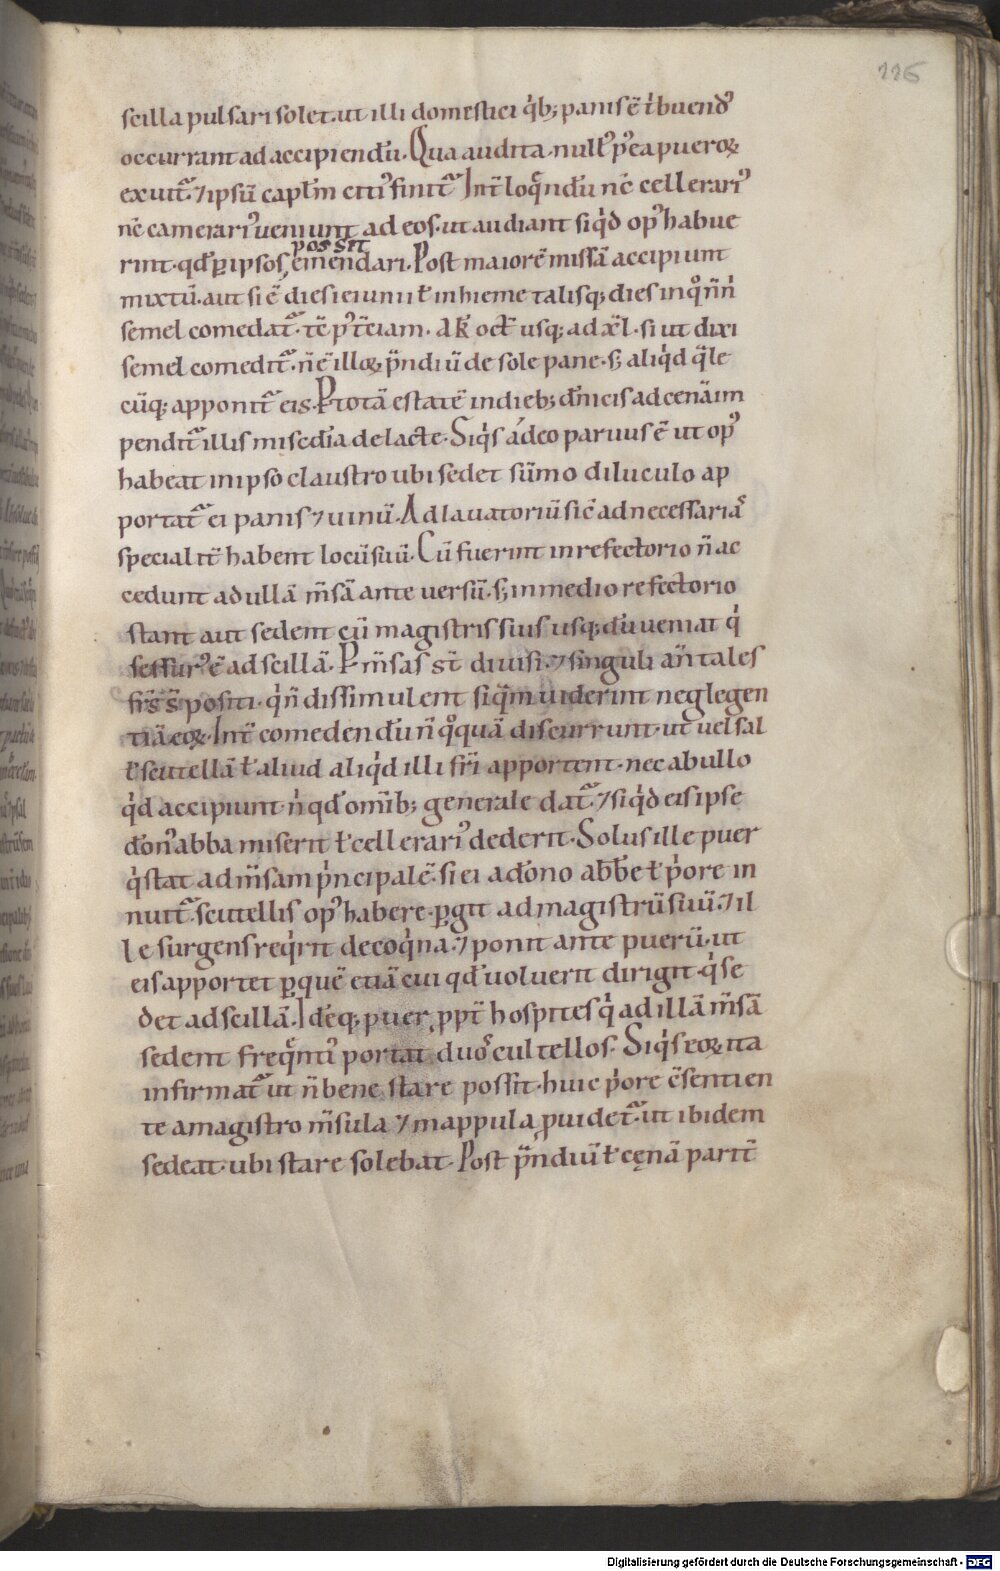 116
scilla pulsari solet. ut illi domestici q̇b; panis ē tͥbuendꝰ
occurrant ad accipiendū. Qua audita. nullꝰ pꝰea pueroꝝ
exuitᷣ. ⁊ ipsū capłm citiꝰ finitᷣ. Int̄ loq̄ndū nc̄ cellerariꝰ
nc̄ camerariꝰ ueniunt ad eos. ut audiant siq̇d opꝰ habue
possit
rint. qd̄ ꝑ ipsos emendari. Post maiorē missā accipiunt
mixtū. aut si ē dies ieiunii ł in hieme talisq; dies in qͦ n̄ nͥ
semel comedatᷣ. tē pꝰ t̄ciam. A kł oct̄ usq; ad xł. si ut dixi
semel comeditᷣ. n̄ ē illoꝝ p̄ndiū de sole pane. s; aliq̇d q̄le
cūq; apponitᷣ eis. P totā estatē in dieb; dn̄icis ad cenā im
penditᷣ illis misc̄dia de lacte. Siq̇s ádeo paruus ē ut opꝰ
habeat in ipso claustro ubi sedet sūmo diluculo ap
portatᷣ ei panis ⁊ uinū. Ad lauatoriū sic̄ ad necessariā
specialit̄ habent locū suū. Cū fuerint in refectorio n̄ ac
cedunt ad ullā m̄sā ante uersū. s; in medio refectorio
stant aut sedent cū magistris suis usq; dū ueniat q̇
sessurꝰ ē ad scillā. P m̄sas st̄ diuisi. ⁊ singuli an̄ tales
fr̄s s̄ positi. q̇ n̄ dissimulent siq̄m uiderint neglegen
tiā eoꝝ. Int̄ comedendū n̄ qͦquā discurrunt. ut uel sal
ł scutellā ł aliud aliq̇d illi fr̄i apportent. nec ab ullo
q̇d accipiunt. nͥ qd̄ om̄ib; generale datᷣ. ⁊ siq̇d eis ipse
dōnꝰ abba miserit ł cellerariꝰ dederit. Solus ille puer
q̇ stat ad m̄sam pͥncipalē. si ei a dōno abb̄e ł pͥore in
nuitᷣ. scutellis opꝰ habere. ꝑgit ad magistrū suū. ⁊ il
le surgens req̇rit de coq̇na. ⁊ ponit ante puerū. ut
eis apportet ꝑ quē etiā cui qd̄ uoluerit dirigit. q̇ se
det ad scillā. Idēq; puer ꝓpt̄ hospites q̇ ad illā m̄sā
sedent freq̄ntiꝰ portat duos cultellos. Siq̇s eoꝝ ita
infirmatᷣ ut n̄ bene stare possit. huic pͥore c̄sentien
te a magistro m̄sula ⁊ mappula ꝓuidetᷣ. ut ibidem
sedeat. ubi stare solebat. Post p̄ndiū ł cęnā parit̄
Digitalisierung gefördert durch die Deutsche Forschungsgemeinschaft - DFG